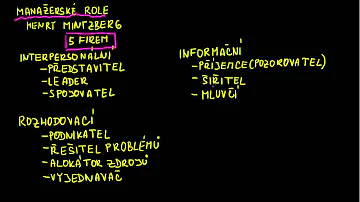 MANAŽERSKÉ ROLE
HENRY MINTZBERG
5 FIREM
INTERPERSONÁLNÍ
-PŘEDSTAVITEL
-LEADER
-SPOJOVATEL
INFORMAČNÍ
-PŘÍJEMCE (POZOROVATEL)
-ŠIŘITEL
-MLUVČÍ
ROZHODOVACÍ
-PODNIKATEL
-ŘEŠITEL PROBLÉMŮ
-ALOKÁTOR ZDROJŮ
-VYJEDNAVAČ